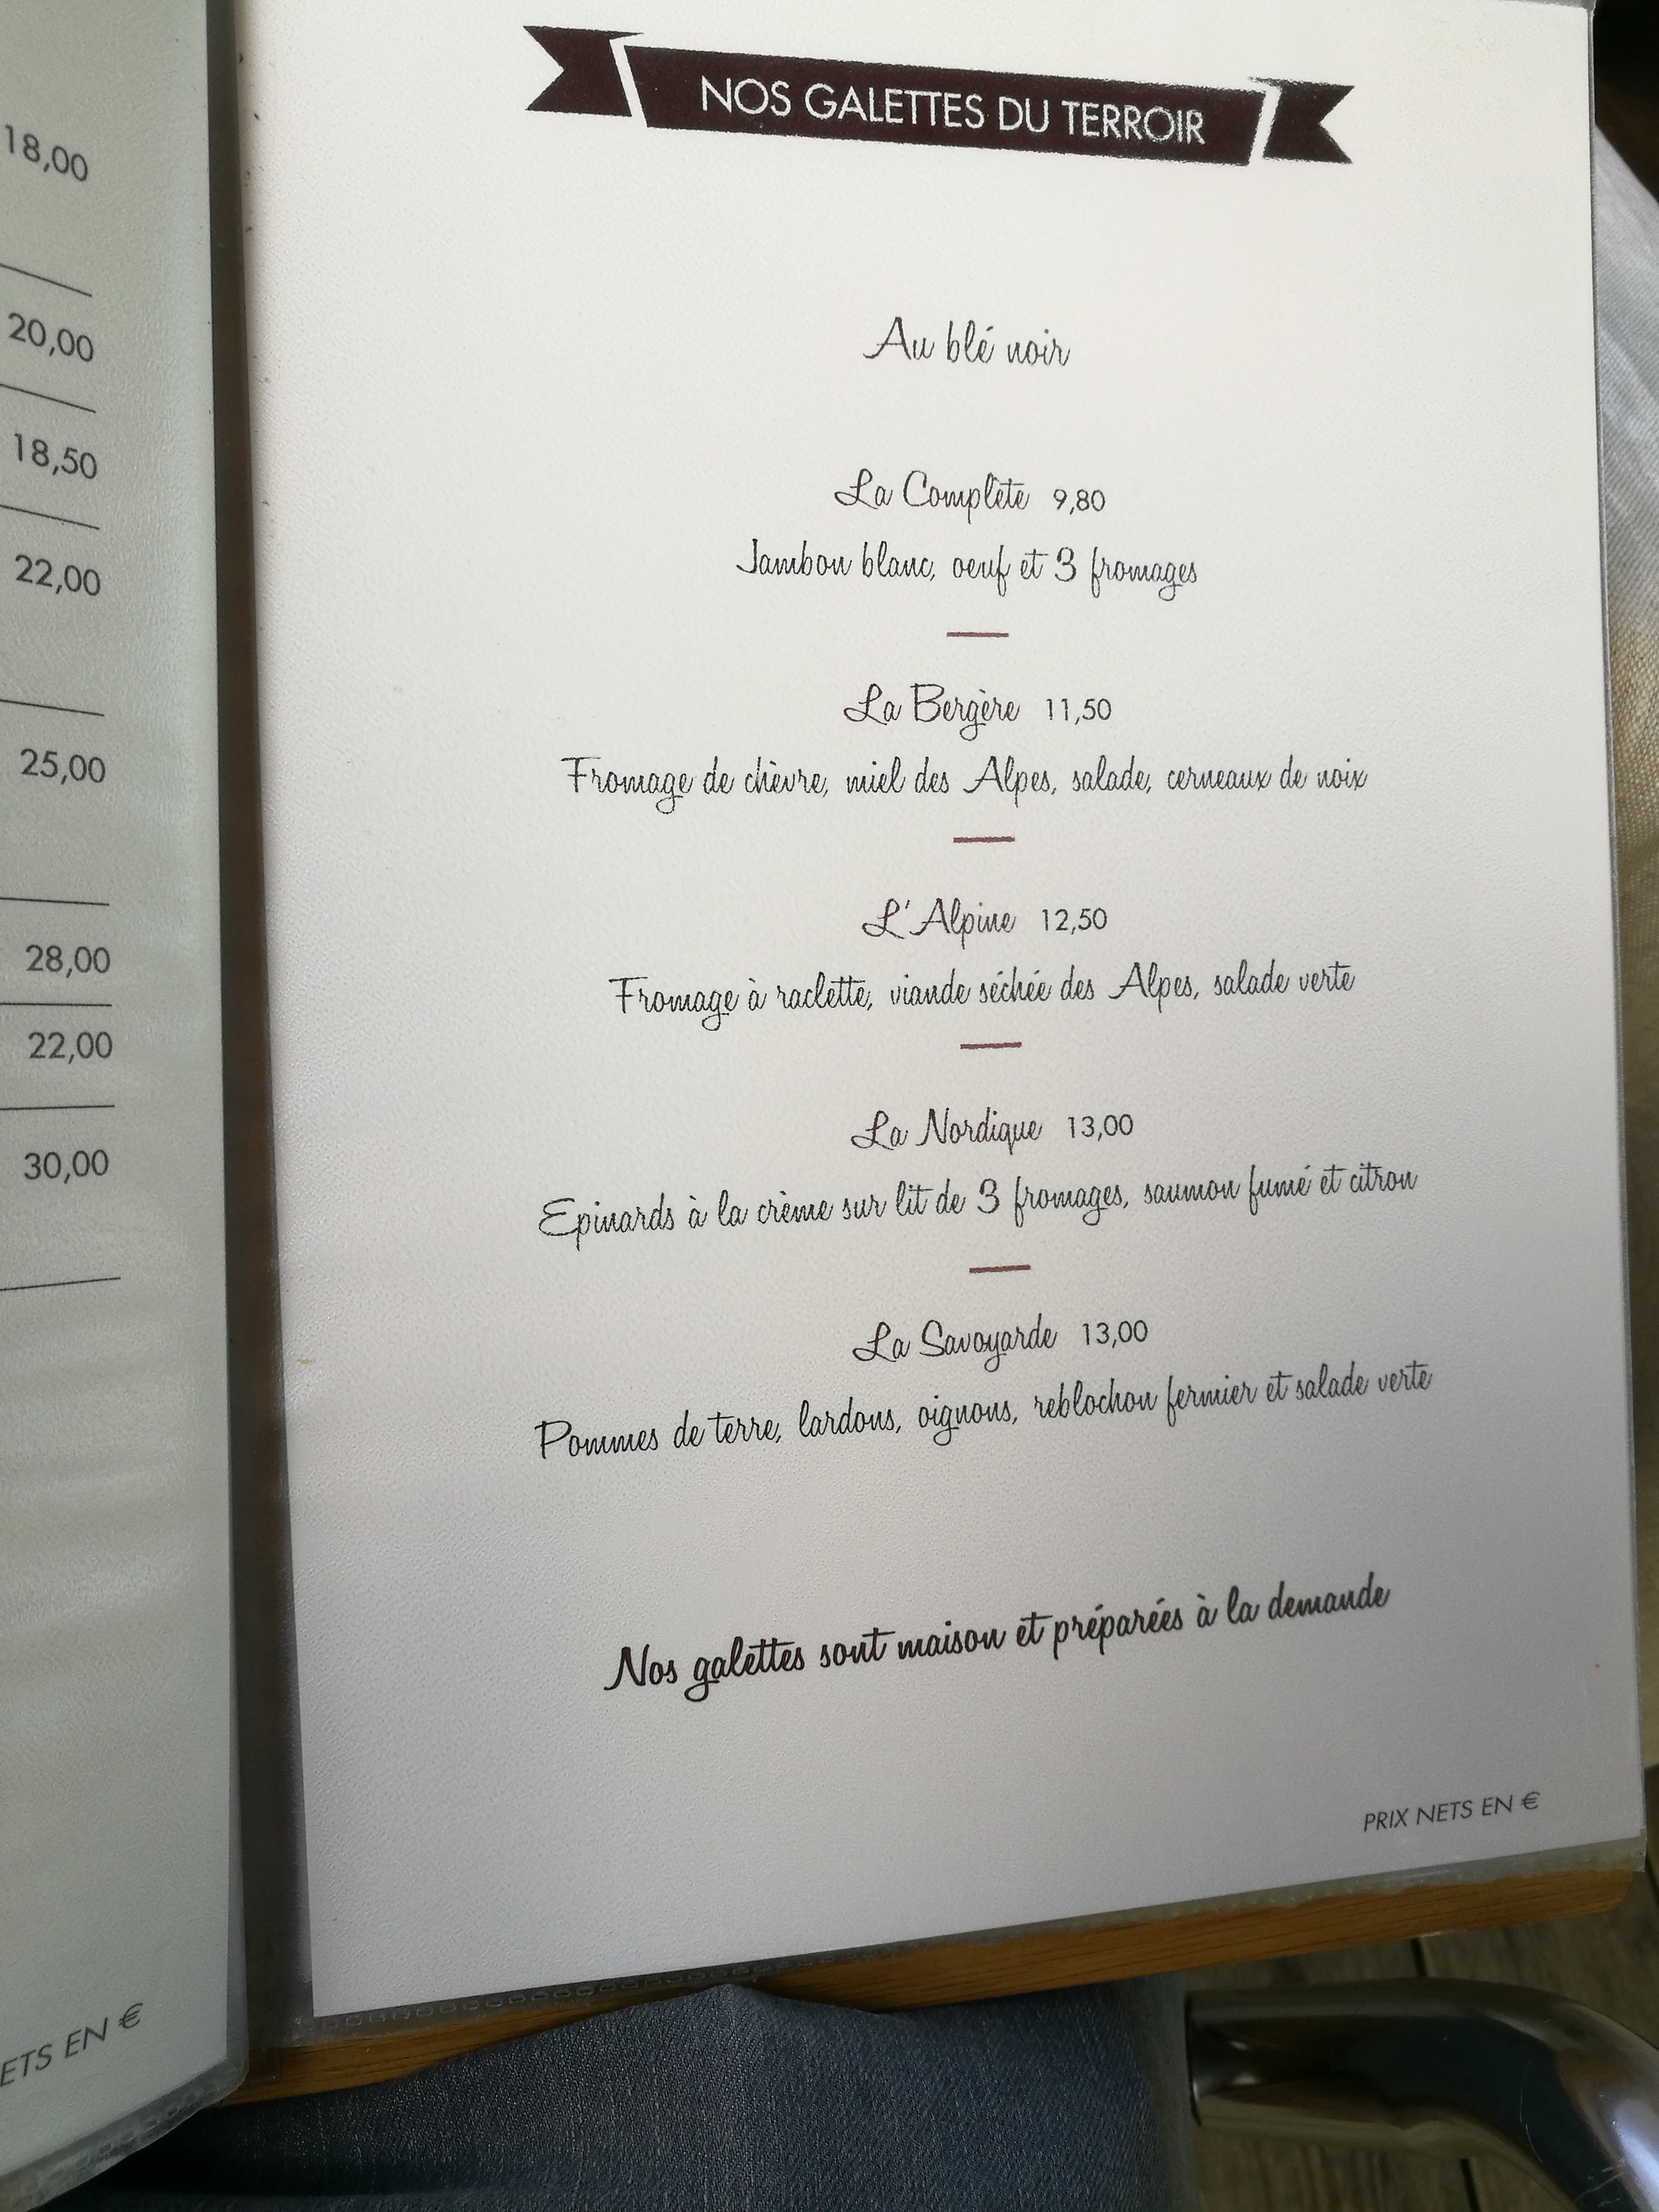 18,00
20,00
18,50
22,00
25,00
28,00
22,00
30,00
ETS EN €
NOS GALETTES DU TERROIR
Au blé noir
La Complète 9,80
Jambon blanc, oeuf et 3 fromages
La Bergère 11,50
Fromage de chèvre, miel des Alpes, salade, cerneaux de noix
L'Alpine 12,50
Fromage à raclette, viande séchée des Alpes, salade verte
La Nordique 13,00
Epinards à la crème sur lit de 3 fromages, saumon fumé et citron
La Savoyarde 13,00
Pommes de terre, lardons, oignons, reblochon fermier et salade verte
Nos galettes sont maison et préparées à la demande
PRIX NETS EN €